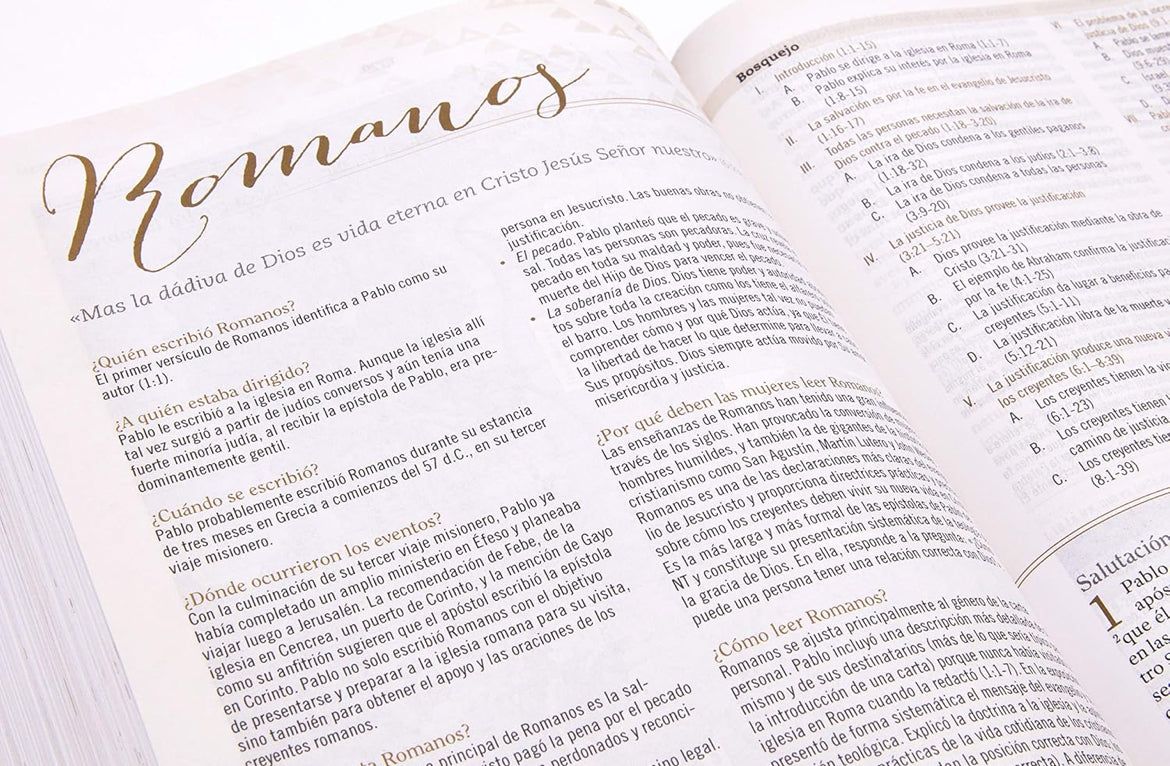 Romanos
«Mas la dádiva de Dios es vida eterna en Cristo Jesús Señor nuestro»
¿Quién escribió Romanos?
El primer versículo de Romanos identifica a Pablo como su
autor (1:1).
¿A quién estaba dirigido?
Pablo le escribió a la iglesia en Roma. Aunque la iglesia allí
tal vez surgió a partir de judíos conversos y aún tenía una
fuerte minoría judía, al recibir la epístola de Pablo, era pre-
dominantemente gentil.
¿Cuándo se escribió?
Pablo probablemente escribió Romanos durante su estancia
de tres meses en Grecia a comienzos del 57 d.C., en su tercer
viaje misionero.
¿Dónde ocurrieron los eventos?
Con la culminación de su tercer viaje misionero, Pablo ya
había completado un amplio ministerio en Éfeso y planeaba
viajar luego a Jerusalén. La recomendación de Febe, de la
iglesia en Cencrea, un puerto de Corinto, y la mención de Gayo
como su anfitrión sugieren que el apóstol escribió la epístola
en Corinto. Pablo no solo escribió Romanos con el objetivo
de presentarse y preparar a la iglesia romana para su visita,
sino también para obtener el apoyo y las oraciones de los
creyentes romanos.
Romanos?
principal de Romanos es la sal-
pagó la pena por el pecado
perdonados y reconci-
legal.
persona en Jesucristo. Las buenas obras no
justificación.
• El pecado. Pablo planteó que el pecado es grave
sal. Todas las personas son pecadoras. La cruz
pecado en toda su maldad y poder, pues fue
muerte del Hijo de Dios para vencer el pecado
• La soberanía de Dios. Dios tiene poder y
tos sobre toda la creación como los tiene el
el barro. Los hombres y las mujeres tal vez no
comprender cómo y por qué Dios actúa, ya que Él
la libertad de hacer lo que determine para llevar a
Sus propósitos. Dios siempre actúa movido por Su
misericordia y justicia.
¿Por qué deben las mujeres leer Romanos?
Las enseñanzas de Romanos han tenido una gran
través de los siglos. Han provocado la conversión de
hombres humildes, y también la de gigantes de la
cristianismo como San Agustín, Martín Lutero y John
Romanos es una de las declaraciones más claras del
lio de Jesucristo y proporciona directrices prácticas
sobre cómo los creyentes deben vivir su nueva vida en
Es la más larga y más formal de las epístolas de
NT y constituye su presentación sistemática de la
la gracia de Dios. En ella, responde a la pregunta:
puede una persona tener una relación correcta con
¿Cómo leer Romanos?
Romanos se ajusta principalmente al género de la carta
personal. Pablo incluyó una descripción más detallada
mismo y de sus destinatarios (más de lo que sería
la introducción de una carta) porque nunca había
iglesia en Roma cuando la redactó (1:1-7). En la
presentó de forma sistemática el mensaje del
ición teológica. Explicó la doctrina a la iglesia y
prácticas de la vida cotidiana de los
la posición correcta con
Bosquejo
I. Introducción (1:1-15)
A. Pablo se dirige a la iglesia en Roma (1:1-7)
B. Pablo explica su interés por la iglesia en Roma
(1:8-15)
II. La salvación es por la fe en el evangelio de Jesucristo
(1:16-17)
III. Todas las personas necesitan la salvación de la ira de
Dios contra el pecado (1:18–3:20)
A. La ira de Dios condena a los gentiles paganos
(1:18-32)
B. La ira de Dios condena a los judíos (2:1–3:8)
C. La ira de Dios condena a todas las personas
(3:9-20)
IV. La justicia de Dios provee la justificación
(3:21–5:21)
A. Dios provee la justificación mediante la obra de
Cristo (3:21-31)
B. El ejemplo de Abraham confirma la
por la fe (4:1-25)
C. La justificación da lugar a beneficios
creyentes (5:1-11)
D. La justificación libra de la muerte
(5:12-21)
V. La justificación produce una nueva
los creyentes (6:1–8:39)
A. Los creyentes tienen la
(6:1-23)
B. Los creyentes tienen
camino de
C. Los creyentes
(8:1-39)
VI. El problema de la
justicia de Dios
A. Pablo se
B.
C.
D.
VII.
Salutación
1 Pablo
2 que él
en las